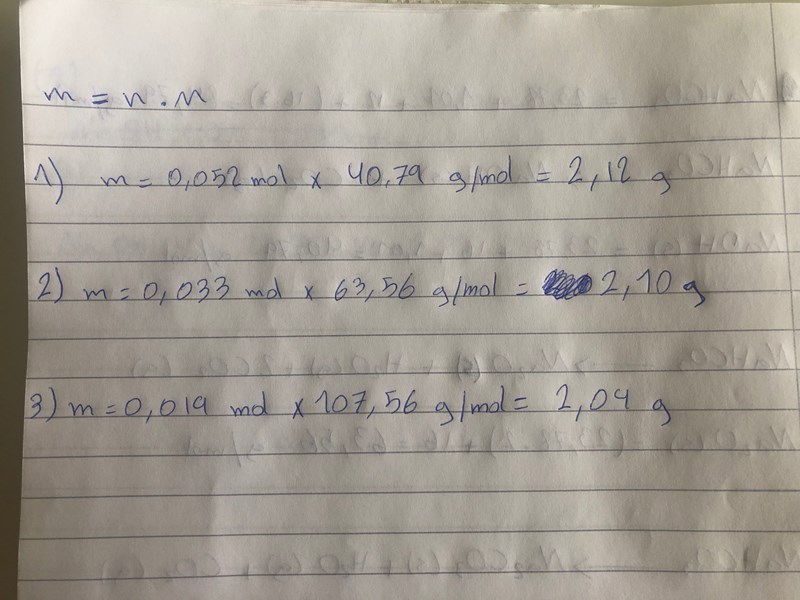 m = n . M
1) m = 0,052 mol x 40,79 g/mol = 2,12 g
2) m = 0,033 mol x 63,56 g/mol = 2,10 g
3) m = 0,019 mol x 107,56 g/mol = 2,04 g